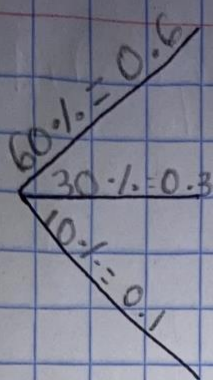 60% = 0.6
30% = 0.3
10% = 0.1